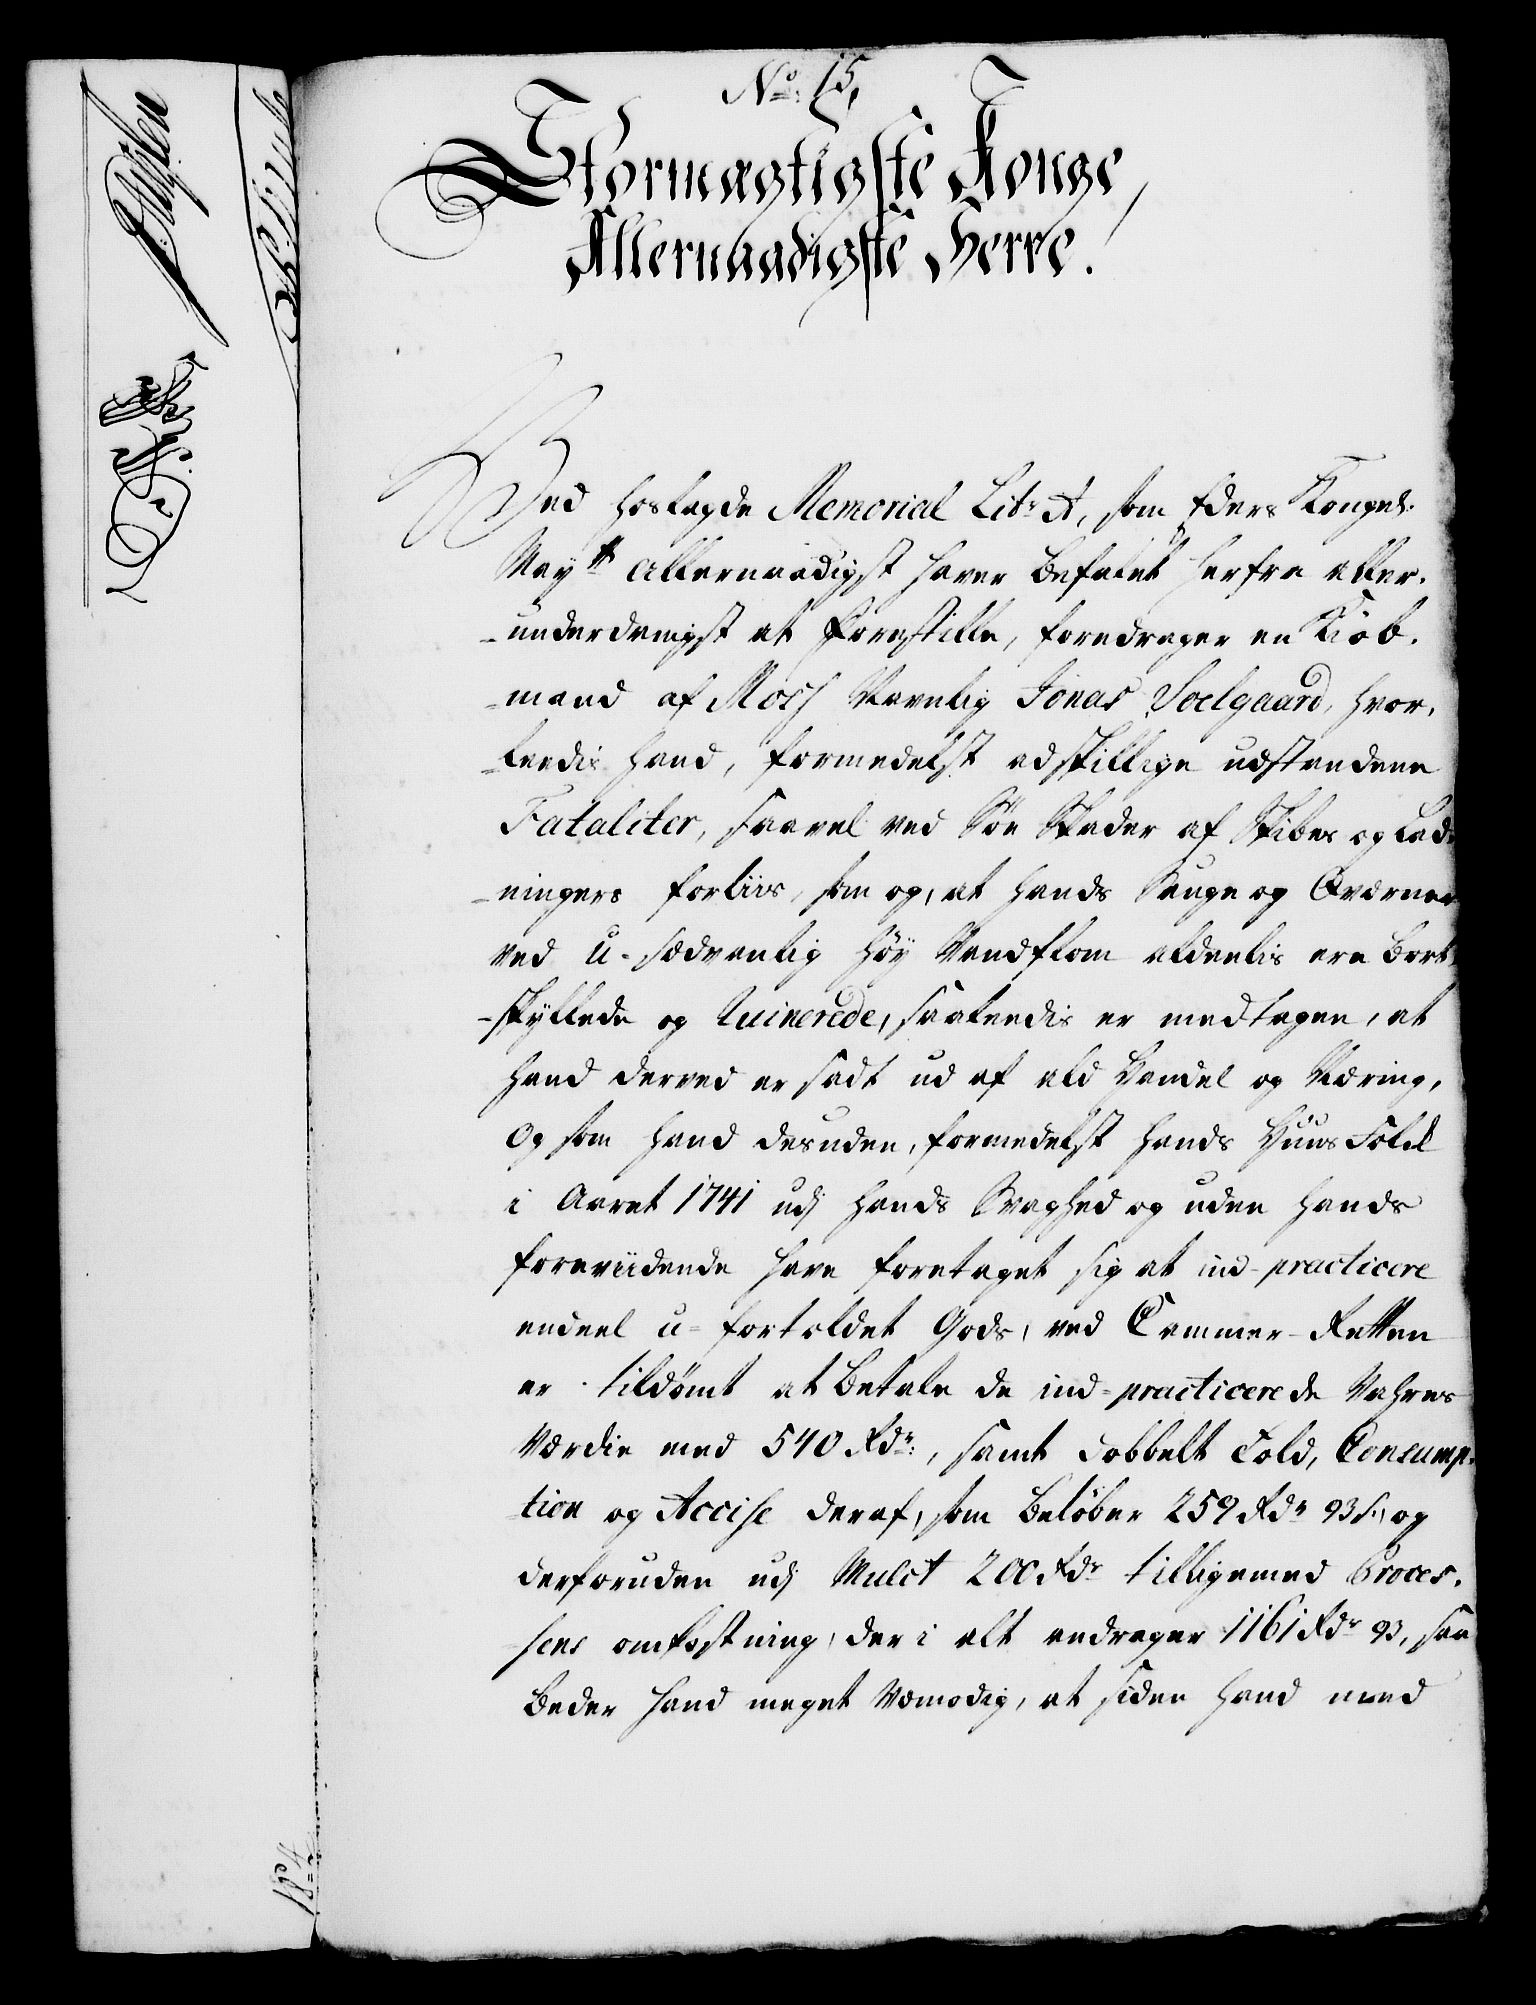 No: 15,
Stormægtigste Konge,
Allernaadigste Herre!
Ved hoslagde Memorial Litr A, som Eders Kongel:
Mayts allernaadigst haver befalet herfra aller-
-underdanigst at forestille, foredrager en Kiøb-
-mand af Moss Navnlig Jonas Soelgaard, hvor-
-leedis hand, formedelst adskillige udstandene
Fataliter, saavel ved Søe Skader af Skibes og Lad-
-ningers forliis, som og, at hands Sauge og Qværner
ved u-sædvanlig høy Vandflom aldeelis ere bort-
-skyllede og Ruinerede, saaleedis er medtagen, at
hand derved er sadt ud af ald Handel og Næring,
Og som hand desuden, formedelst hands Huus Folck
i Aaret 1741 udj hands Svaghed og uden hands
foreviidende have foretaget sig at ind-practicere
endeel u-fortoldet Gods, ved Cammer-Retten
er tildømt at betale de ind-practicerede Vahres
Værdie med 540 Rdr:, samt dobbelt Told, Consump-
-tion og Accise deraf, som beløber 259 Rdr 93 s. og
derforuden udj Mulct 200 Rdr tilligemed Proces-
sens omkostning, der i alt andrager 1161 Rdr 93, saa
beder hand meget Vemodig, at siden hand med